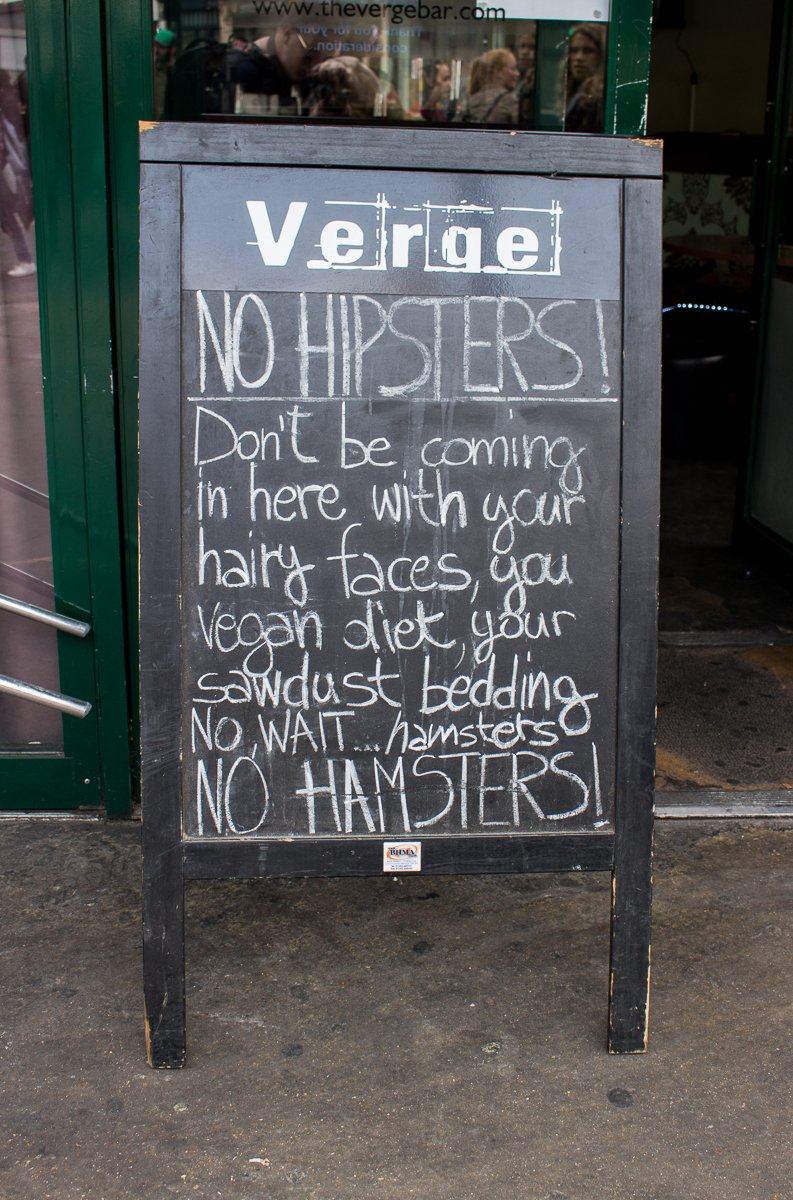 www.thevergebar.com
Thank you for your
consideration.
Verge
NO HIPSTERS!
Don't be coming
in here with your
hairy faces, you
vegan diet, your
sawdust bedding
NO, WAIT... hamsters
NO HAMSTERS!
BHMA